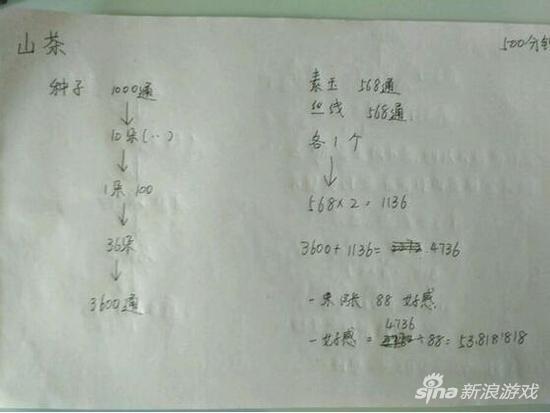 山茶
500分钟
种子 1000通
10朵(··)
1朵 100
36朵
3600通
素玉 568通
丝线 568通
各1个
568×2=1136
3600+1136= 4736
一朵涨 88 好感
4736
一好感= ÷88=53.8181818
sina新浪游戏